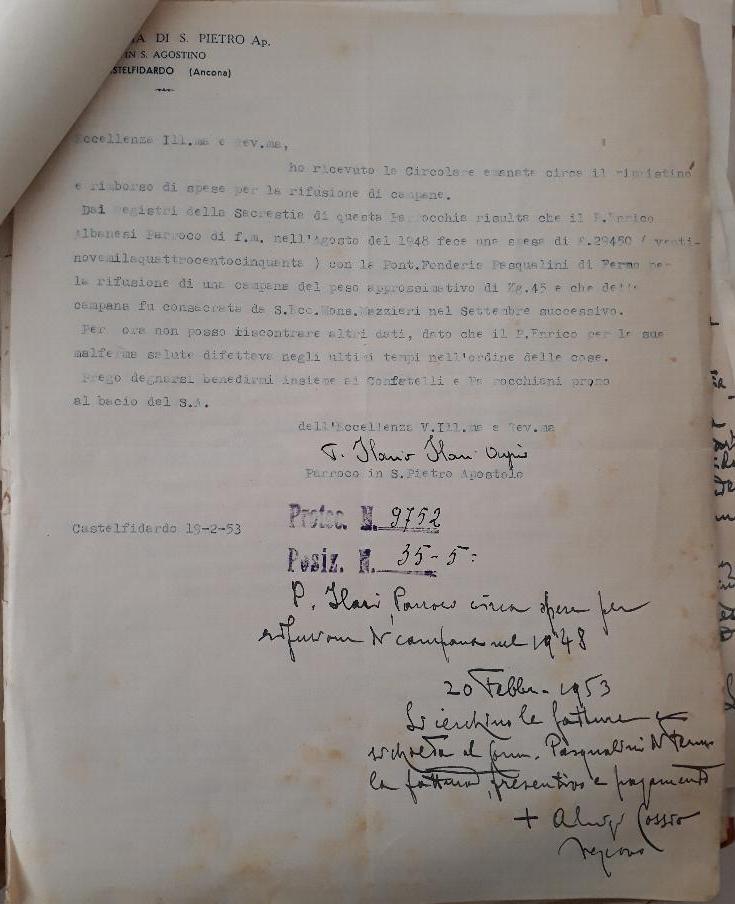 A DI S. PIETRO Ap.
IN S. AGOSTINO
STELFIDARDO (Ancona)
Eccellenza Ill.ma e Rev.ma,
ho ricevuto la Circolare emanata circa il ripristino
e rimborso di spese per la rifusione di campane.
Dai Registri della Sacrestia di questa Parrocchia risulta che il P.Enrico
Albanesi Parroco di f.m. nell'Agosto del 1948 fece una spesa di £.29450 ( venti-
novemilaquattrocentocinquanta ) con la Pont.Fonderia Pasqualini di Fermo per
la rifusione di una campana del peso approssimativo di Kg.45 e che detta
campana fu consacrata da S.Ecc.Mons.Mazzieri nel Settembre successivo.
Per ora non posso riscontrare altri dati, dato che il P.Enrico per la sua
malferma salute difettava negli ultimi tempi nell'ordine delle cose.
Prego degnarsi benedirmi insieme ai Confatelli e Parrocchiani prono
al bacio del S.A.
dell'Eccellenza V.Ill.ma e Rev.ma
P. Ilario Ilari
Parroco in S.Pietro Apostolo
Castelfidardo 19-2-53
Protoc. N. 9752
Posiz. N. 35-5=
P. Ilari, Parroco circa spesa per
rifusione campana nel 1948
20 Febbr. 1953
le fatture e
Pasqualini
la fattura, preventivo e pagamento
+ Cossio
vescovo